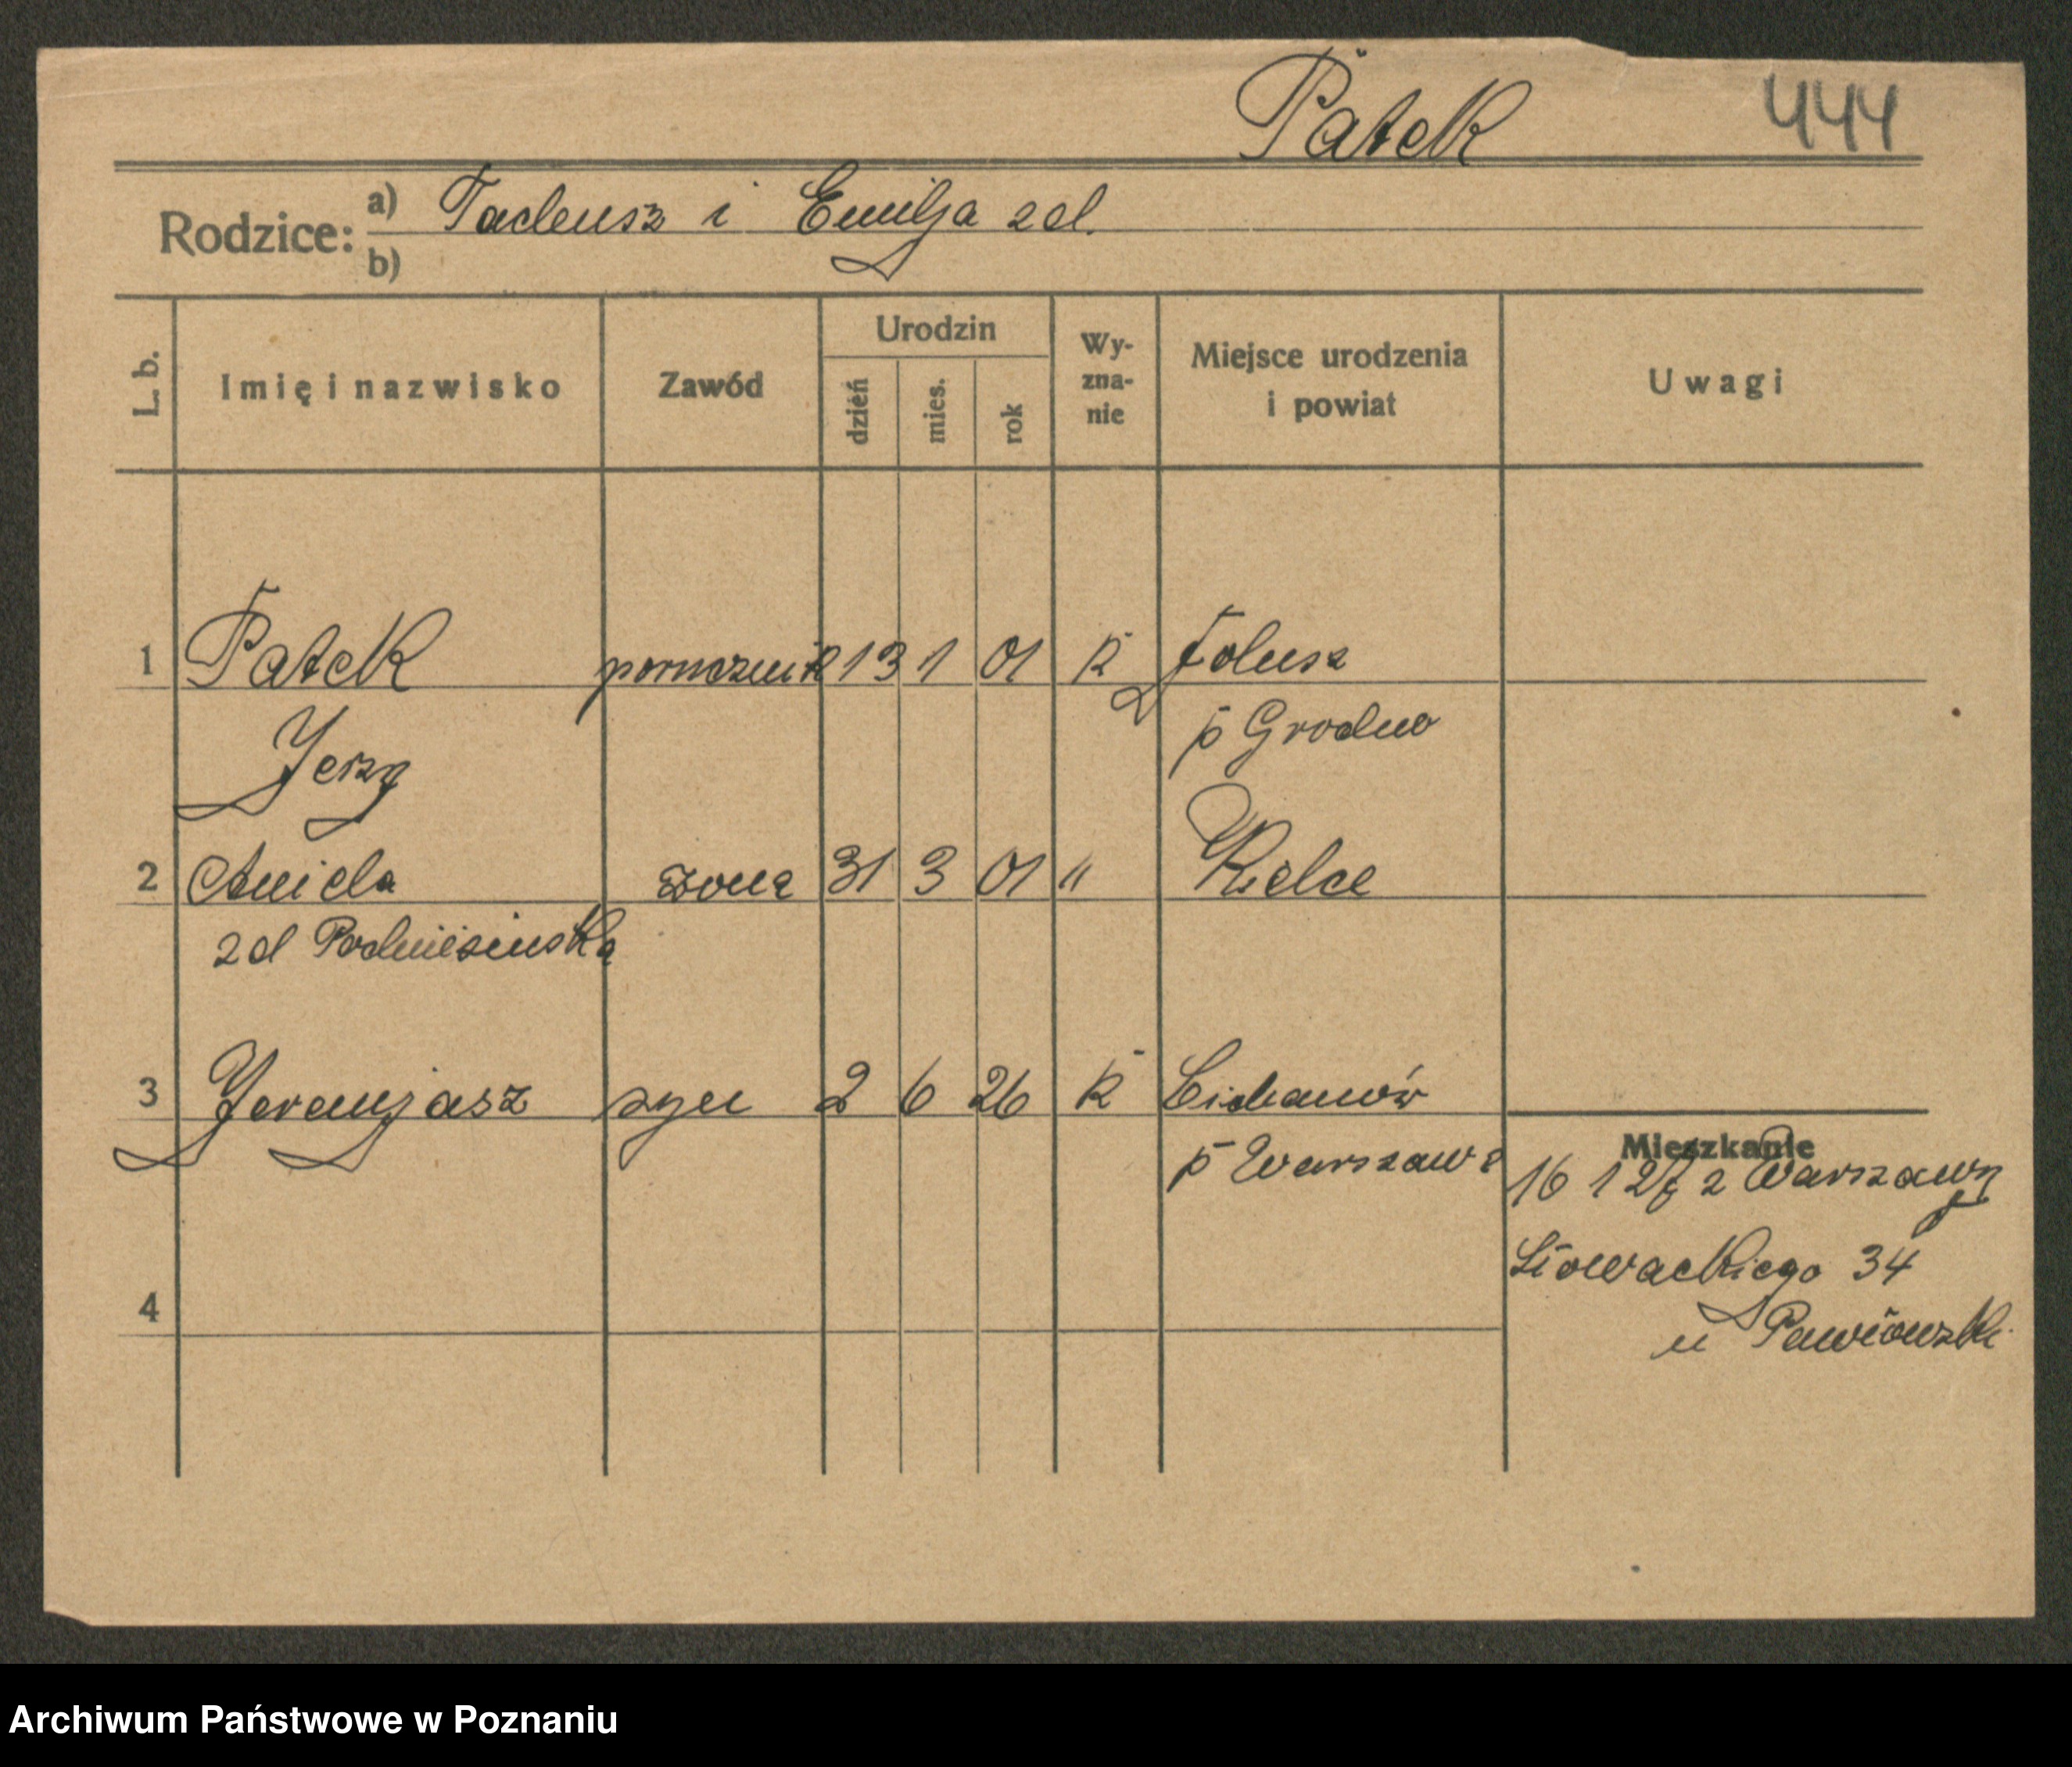 Patek 444
Rodzice: a) Tadeusz i Emilja zd.
b)
L. b. Imię i nazwisko Zawód Urodzin dzień mies. rok Wy-zna-nie Miejsce urodzenia i powiat Uwagi
1 Patek porucznik 13 1 01 k Folusz
Jerzy p Grodno
2 Aniela żona 31 3 01 " Kielce
zd Podniesinska
3 Jeremjasz syn 2 6 26 k Ciehanów
p Warszawa
Mieszkanie
16 1 27 z Warszawy
Słowackiego 34
4
u
Archiwum Państwowe w Poznaniu